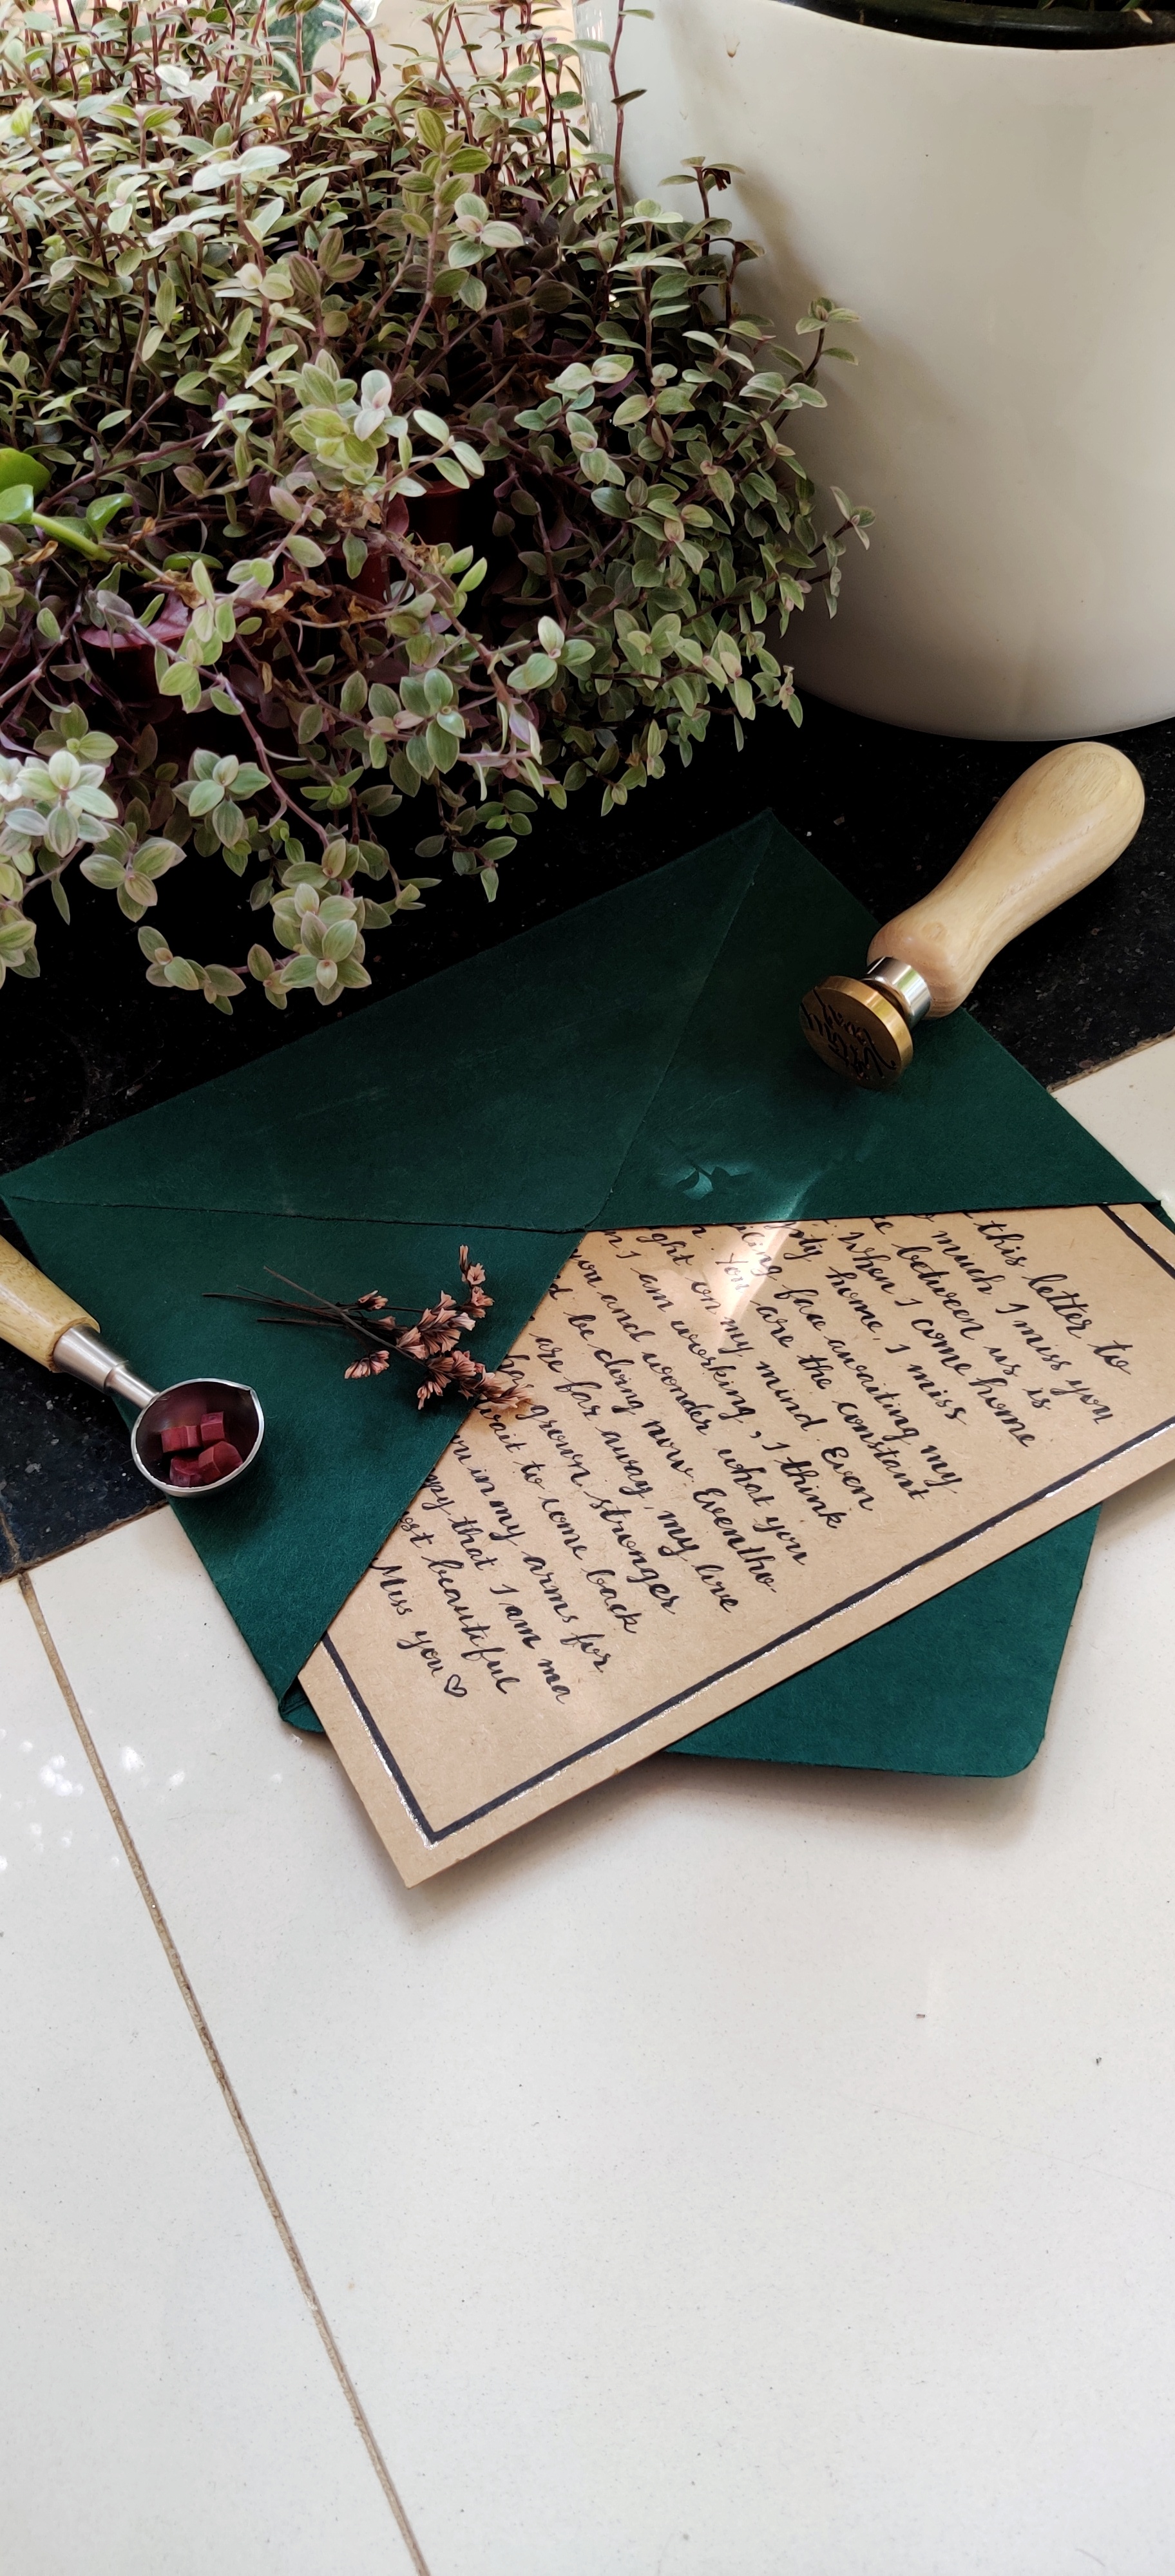 this letter to
much I miss you
between us is
When I come home
home, I miss
awaiting my
You are the constant
on my mind. Even
I am working, I think
you and wonder what you
be doing now. Eventho
are far away, my love
has grown stronger
wait to come back
in my arms for
that I am ma
beautiful
Miss you ♡